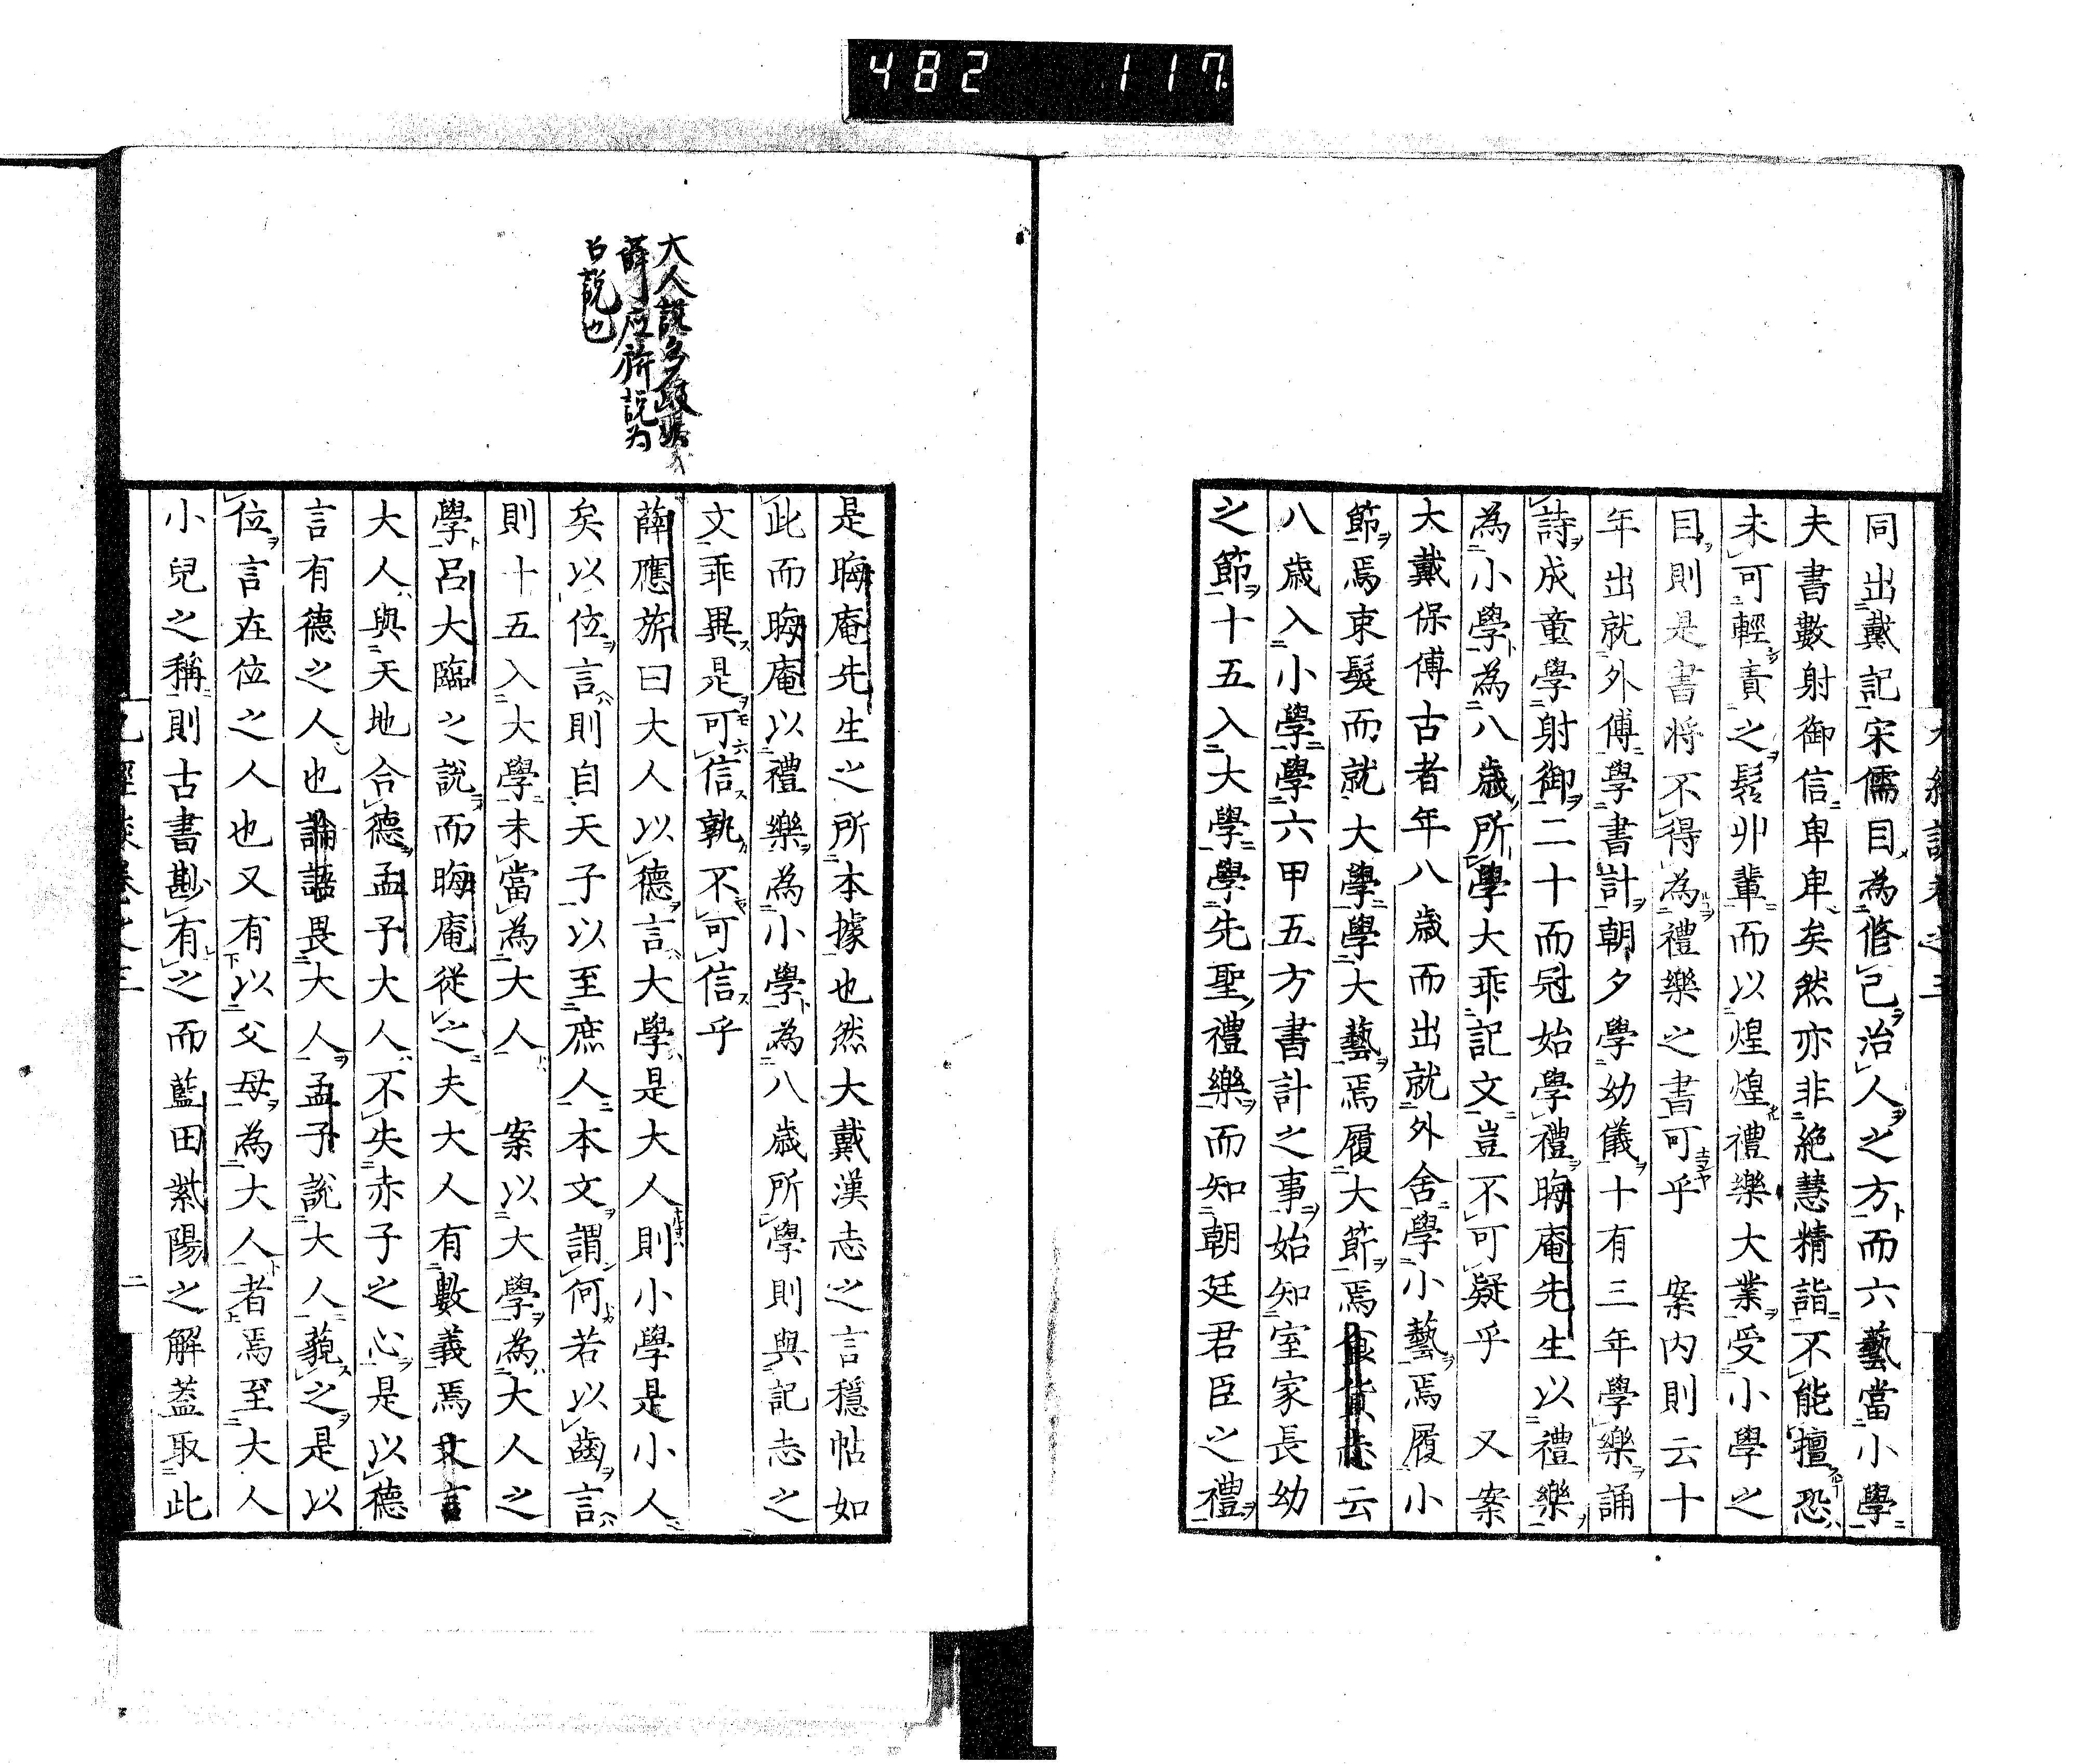 482 117
同出戴記宋儒目為修己治人之方而六藝當小學
夫書數射御信卑卑矣然亦非絶慧精詣不能擅恐
未可輕責之髫丱輩而以煌煌禮樂大業受小學之
目則是書将不得為禮樂之書可乎　案内則云十
年出就外傅學書計朝夕學幼儀十有三年學樂誦
詩成童學射御二十而冠始學禮晦庵先生以禮樂
為小學為八歳所學大乖記文豈不可疑乎　又案
大戴保傅古者年八歳而出就外舍學小藝焉履小
節焉束髮而就大學學大藝焉履大節焉食貨志云
八歳入小學學六甲五方書計之事始知室家長幼
之節十五入大學學先聖禮樂而知朝廷君臣之禮
是晦庵先生之所本據也然大戴漢志之言穏帖如
此而晦庵以禮樂為小學為八歳所學則與記志之
文乖異是可信孰不可信乎
薛應旂曰大人以德言大學是大人則小學是小人
矣以位言則自天子以至庶人本文謂何若以齒言
則十五入大學未當為大人　案以大學為大人之
學呂大臨之說而晦庵従之夫大人有數義焉文言
大人與天地合德孟子大人不失赤子之心是以德
言有德之人也論語畏大人孟子說大人藐之是以
位言在位之人也又有以父母為大人者焉至大人
小兒之稱則古書尠有之而藍田紫陽之解蓋取此
二
薛應旂説为
古説也